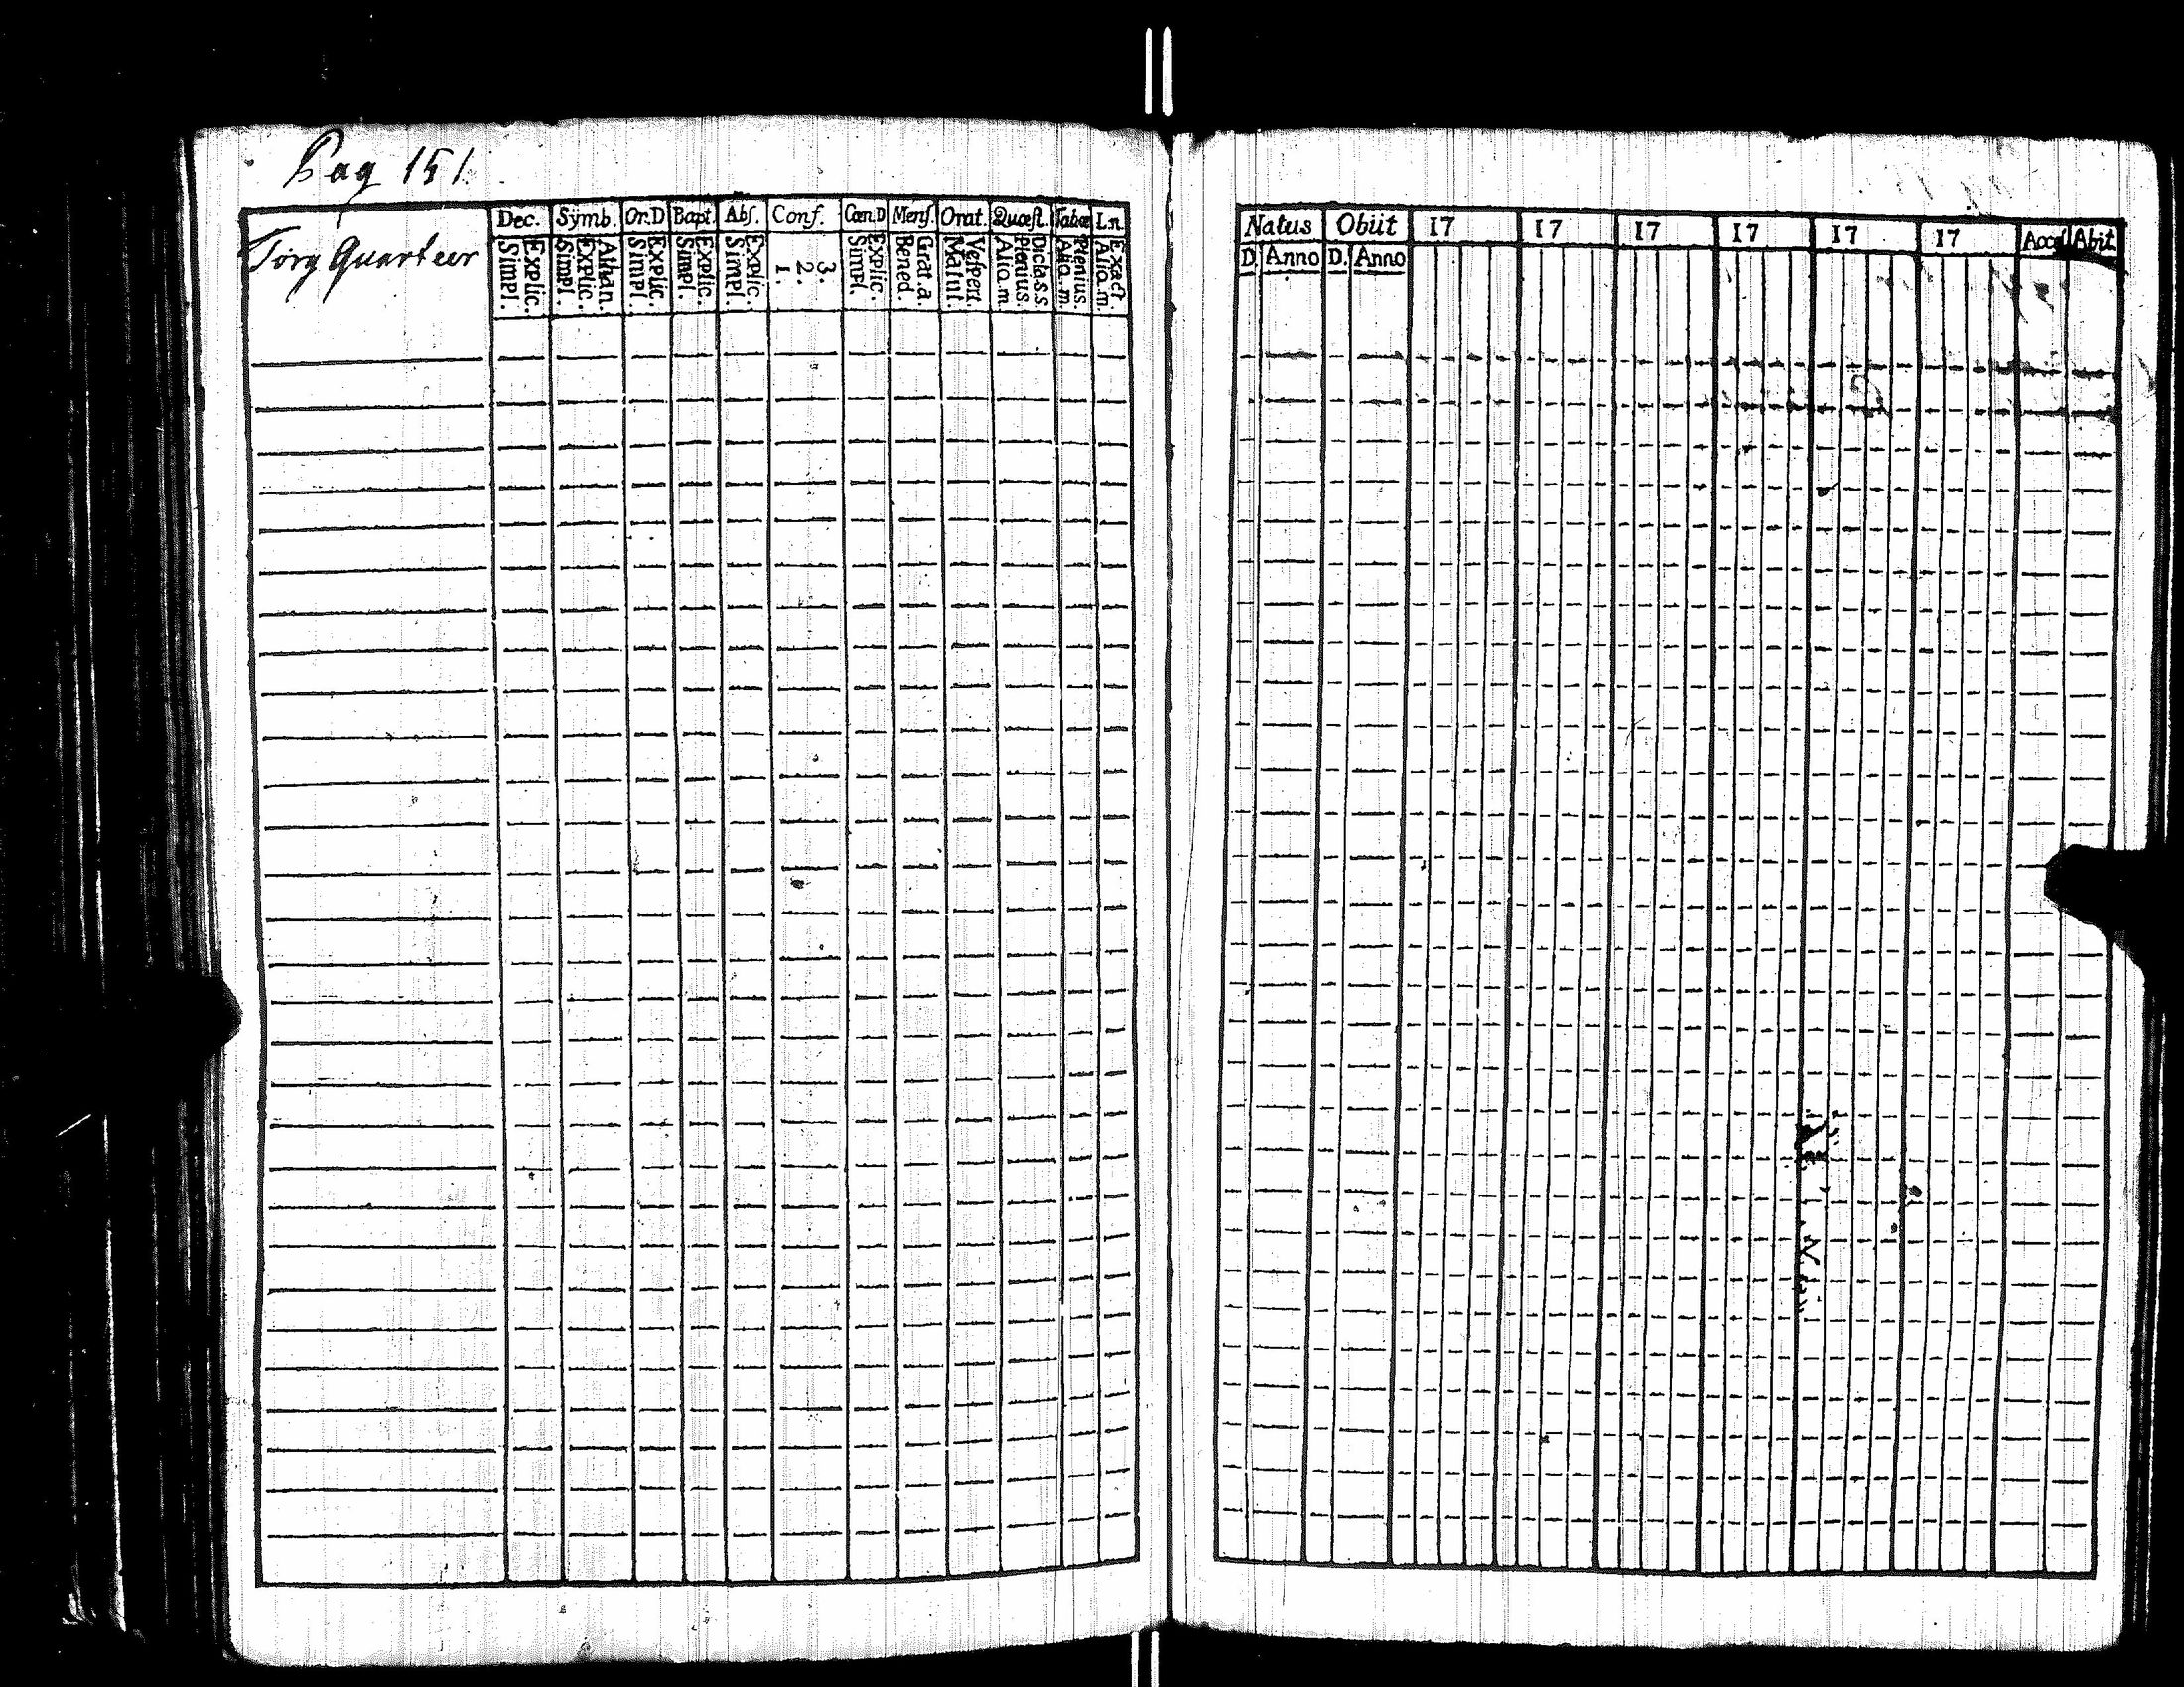 Pag 151.
Torg Quarteer
Dec. Sÿmb. Or.D Bapt. Abſ. Conf. Cœn.D Menſ. Orat. Quæſt. Tabæ Ln.
Explic. Simpl. Athan. Explic. Simpl. Explic. Simpl. Explic. Simpl. Explic. Simpl. 3. 2. 1. Explic. Simpl. Grat. a. Bened. Veſpert. Matut. Dicta.s.s. Plenius. Aliq.m. Plenius. Aliq.m. Exact Aliq.m.
Natus Obiit 17 17 17 17 17 17 Acceſ Abiit
D. Anno D. Anno